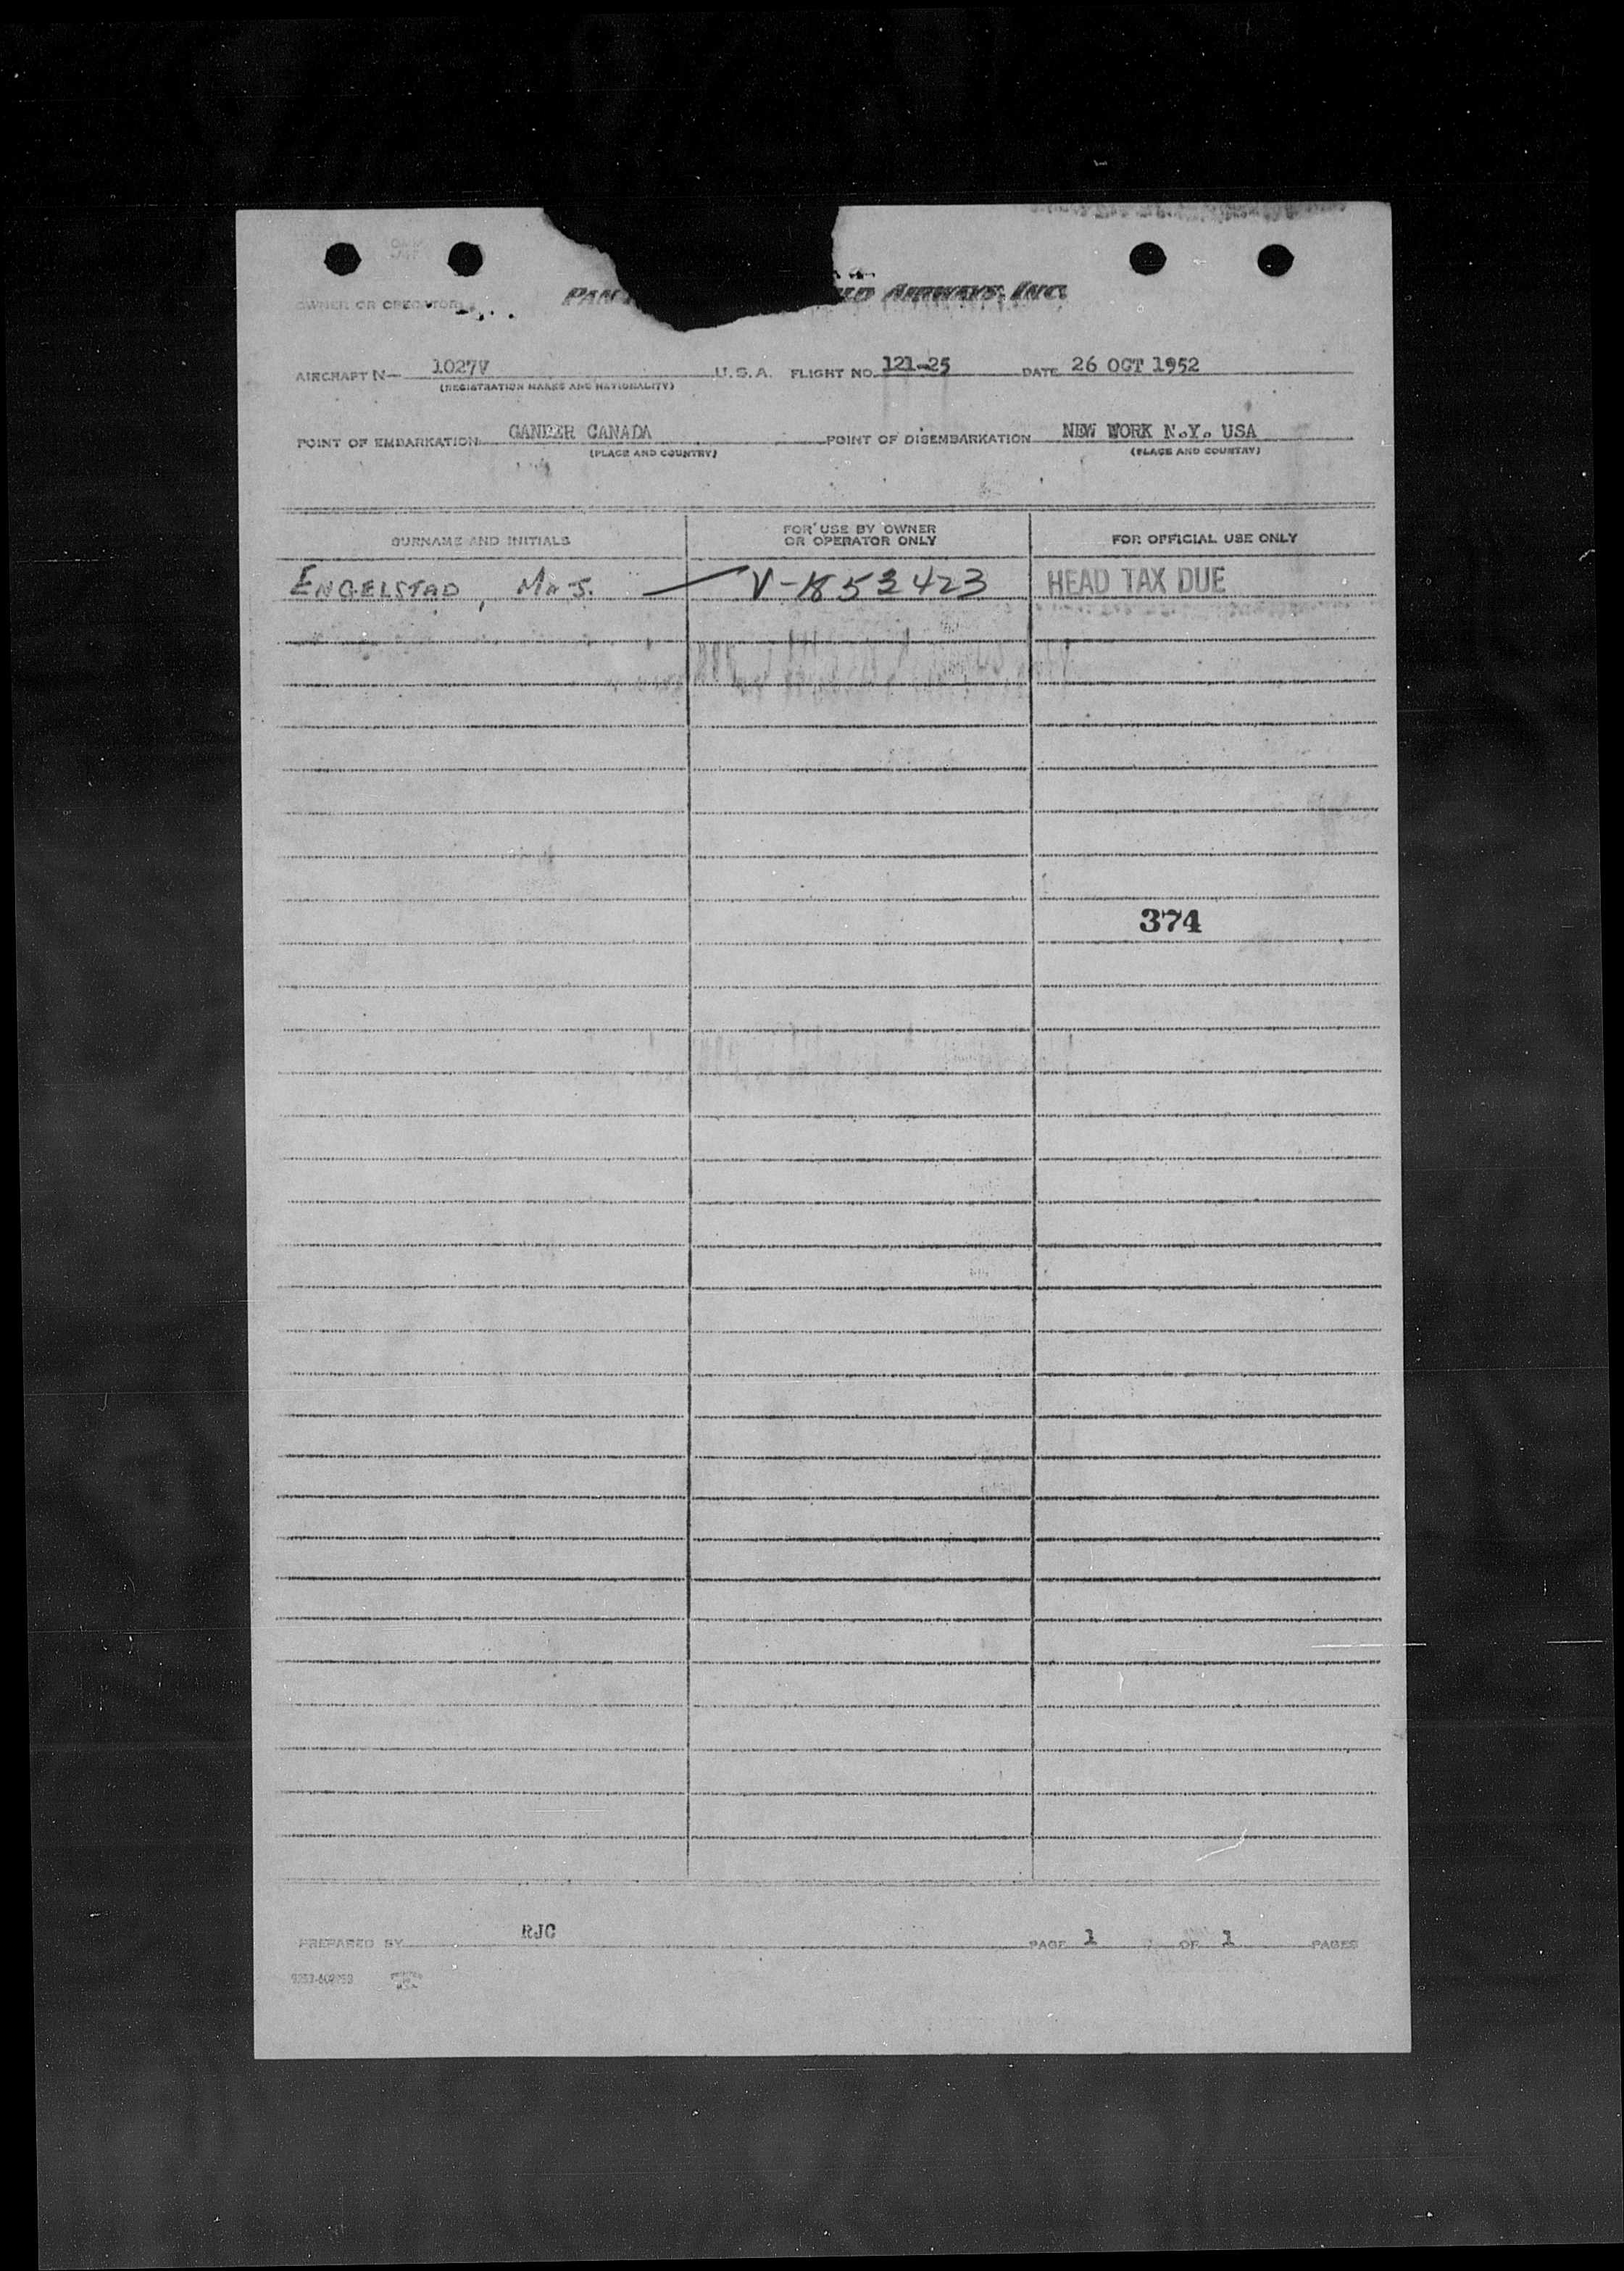 OWNER OR OPERATOR
PAN
LD AIRWAYS, INC.
AIRCRAFT N- 1027V U.S.A. FLIGHT NO. 121-25 DATE 26 OCT 1952
(REGISTRATION MARKS AND NATIONALITY)
POINT OF EMBARKATION GANDER CANADA POINT OF DISEMBARKATION NEW WORK N.Y. USA
(PLACE AND COUNTRY) (PLACE AND COUNTRY)
SURNAME AND INITIALS FOR USE BY OWNER OR OPERATOR ONLY FOR OFFICIAL USE ONLY
ENGELSTAD, MR J. V-1853423 HEAD TAX DUE
374
PREPARED BY RJC PAGE 1 OF 1 PAGES